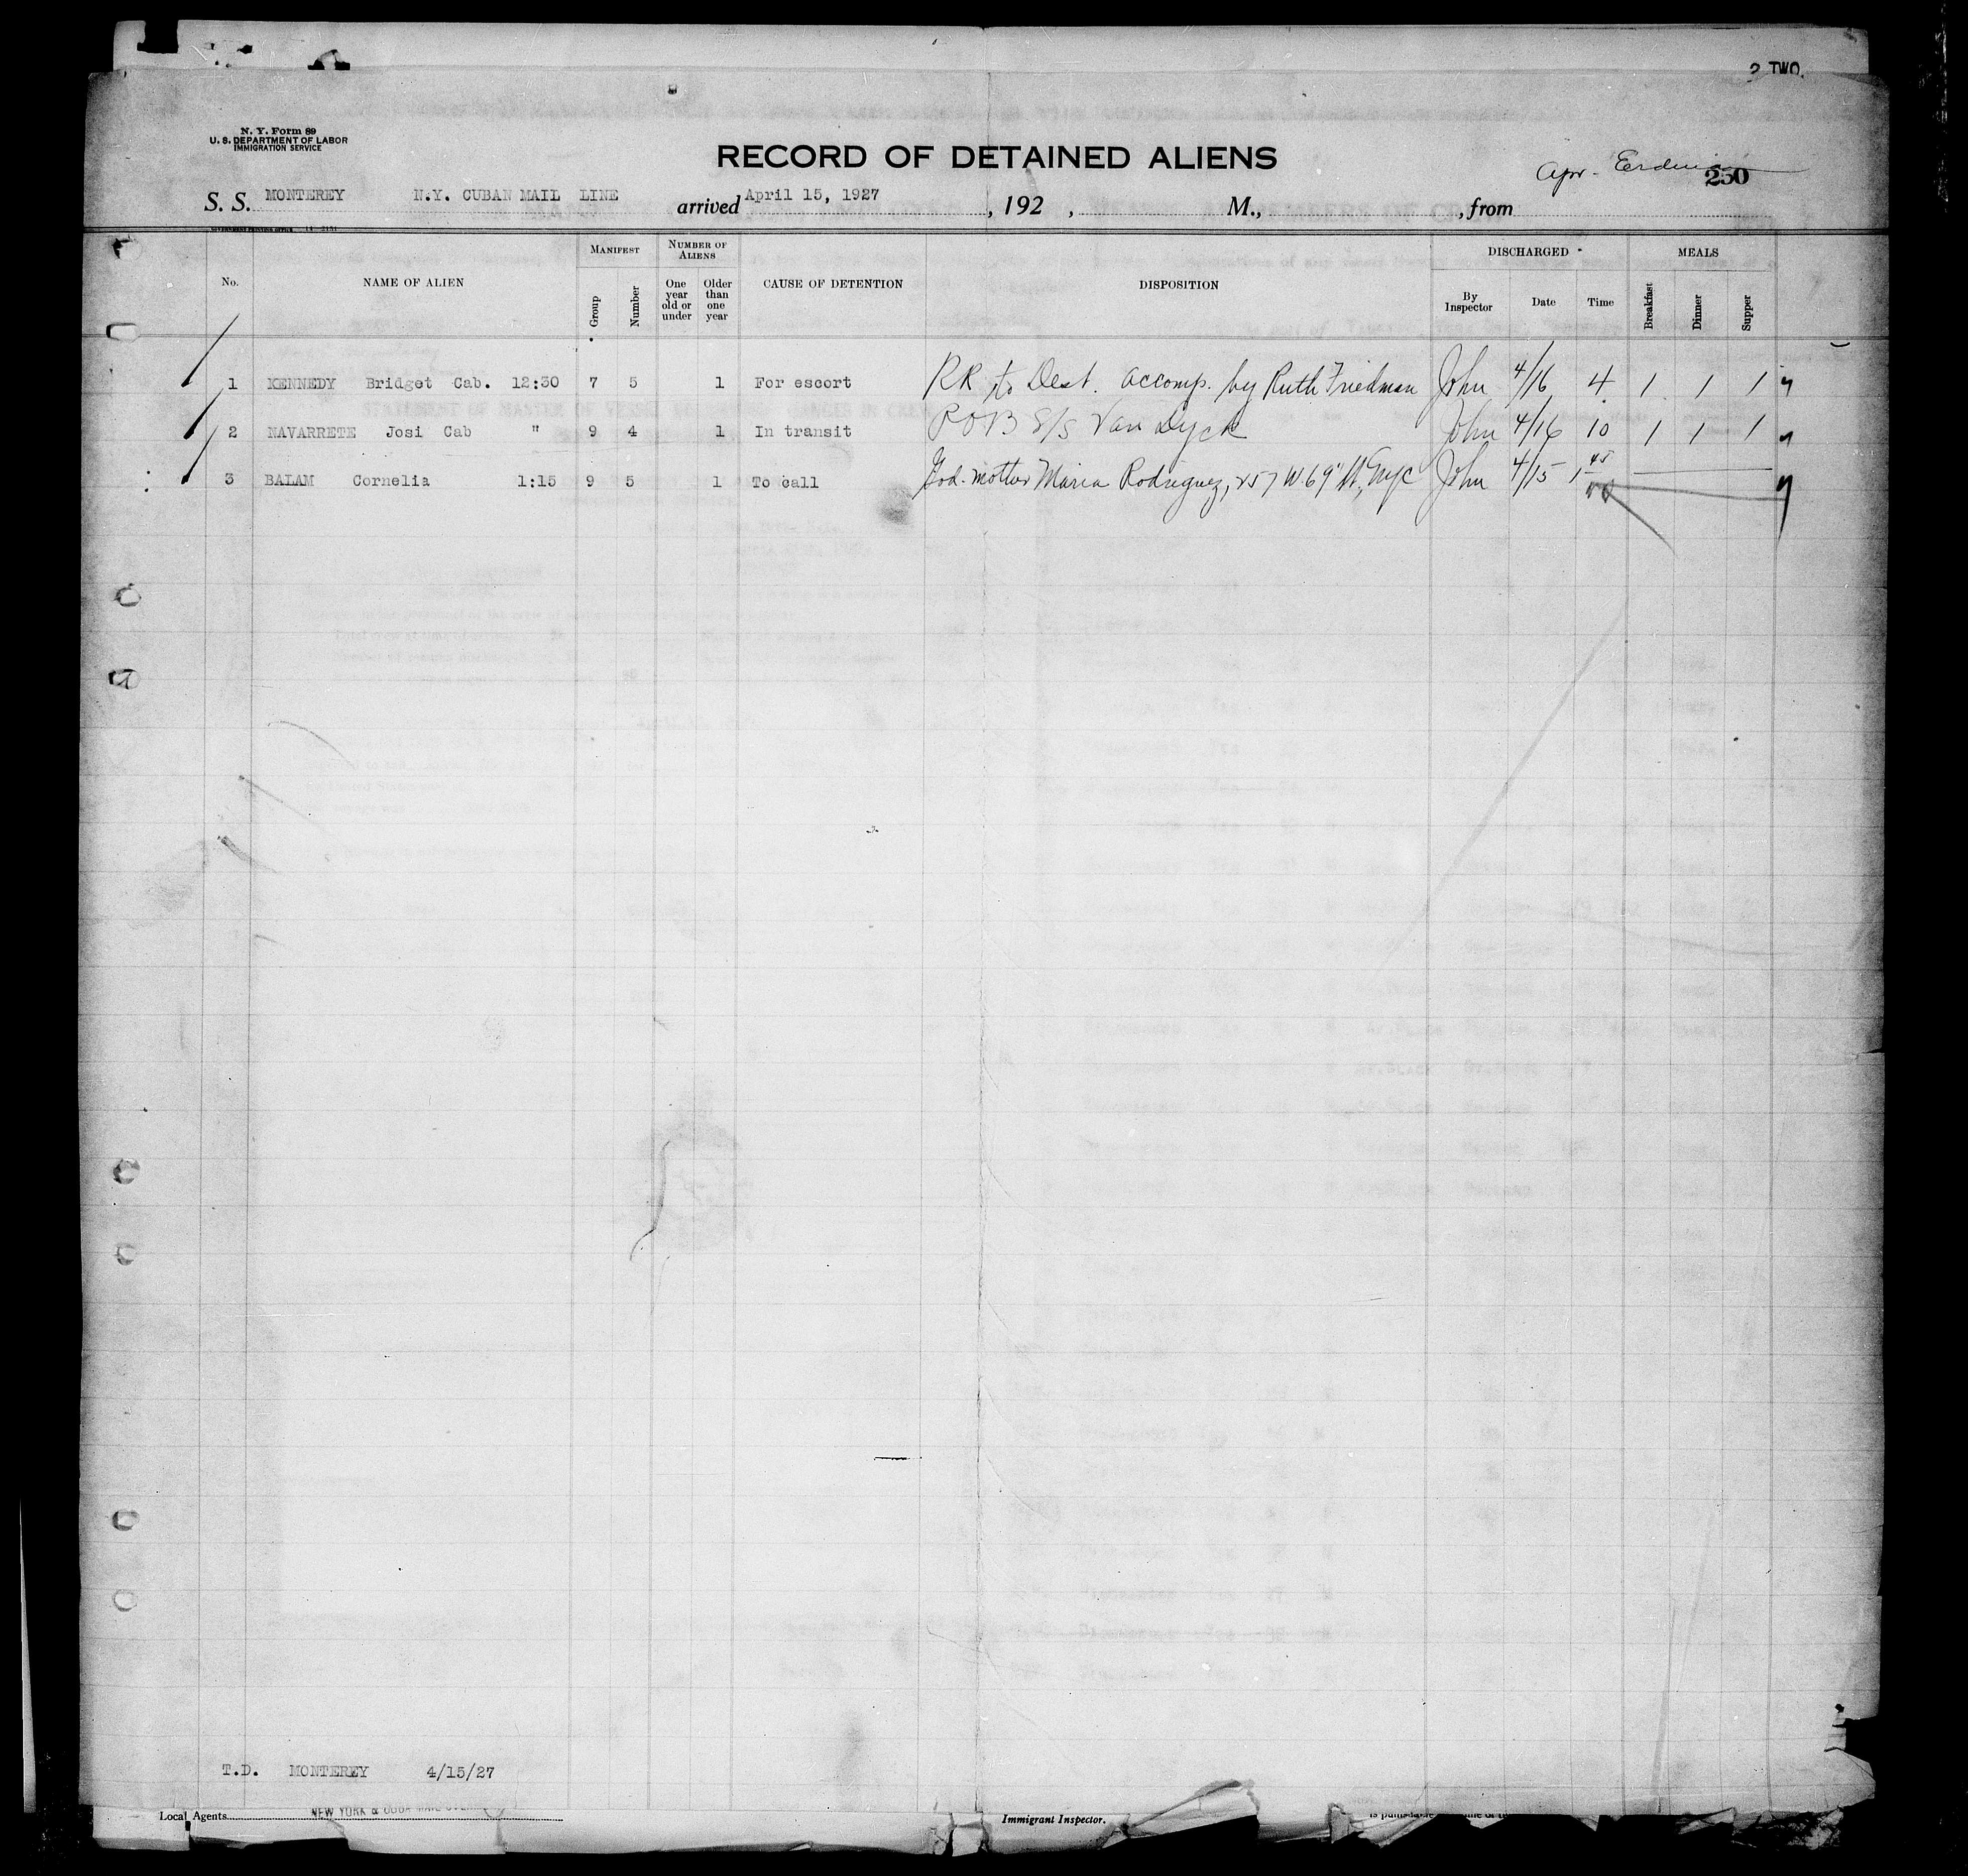 2 TWO.
N. Y. Form 89
U. S. DEPARTMENT OF LABOR
IMMIGRATION SERVICE
RECORD OF DETAINED ALIENS
Apr.
250
S. S. MONTEREY N.Y. CUBAN MAIL LINE arrived April 15, 1927, 192 , M., , from
No. NAME OF ALIEN MANIFEST Group Number NUMBER OF ALIENS One year old or under Older than one year CAUSE OF DETENTION DISPOSITION DISCHARGED By Inspector Date Time MEALS Breakfast Dinner Supper
1 KENNEDY Bridget Cab. 12:30 7 5 1 For escort RR to Dest. accomp. by Ruth Friedman John 4/16 4 1 1 1
2 NAVARRETE Josi Cab " 9 4 1 In transit ROB S/S Van Dyck John 4/16 10 1 1 1
3 BALAM Cornelia 1:15 9 5 1 To call God-mother Maria Rodriguez, 257 W 69" St, NYC John 4/15 1 45
T.D. MONTEREY 4/15/27
Local Agents NEW YORK & CUBA MAIL
Immigrant Inspector.